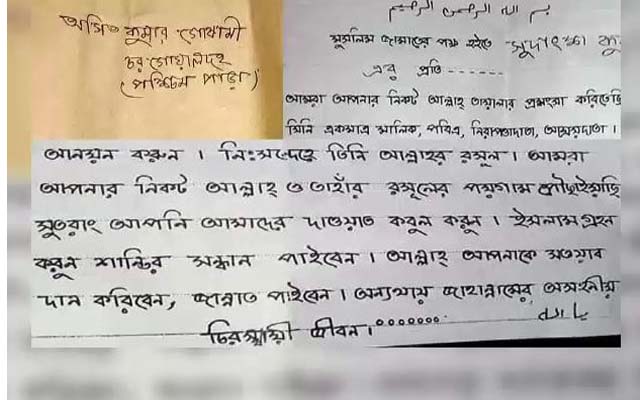 অসিত কুমার গোস্বামী
চর গোয়ালদহ
(পশ্চিম পাড়া)
মুসলিম জামাতের পক্ষ হইতে
এর প্রতি-------
আমরা আপনার নিকট আল্লাহ্ তায়ালার প্রশংসা করিতেছি
যিনি একমাত্র মালিক, পবিত্র, নিরাপত্তাদাতা, আশ্রয়দাতা।
আনয়ন করুন। নিঃসন্দেহে তিনি আল্লাহর রসূল। আমরা
আপনার নিকট আল্লাহ্ ও তাহাঁর রসূলের পয়গাম পৌঁছাইয়াছি
সুতরাং আপনি আমাদের দাওয়াত কবুল করুন। ইসলাম গ্রহন
করুন শান্তির সন্ধান পাইবেন। আল্লাহ্ আপনাকে সওয়াব
দান করিবেন, জান্নাত পাইবেন। অন্যথায় জাহান্নামের অসহনীয়
চিরস্থায়ী জীবন।